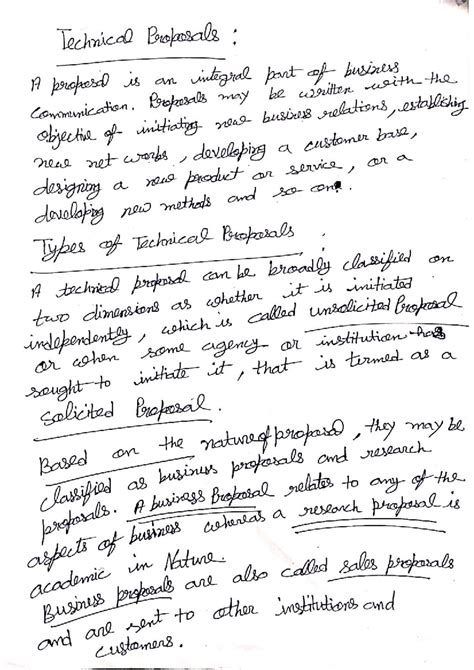 Technical Proposals :
A proposal is an integral part of business
Communication. Proposals may be written with the
objective of initiating new business relations, establishing
new net works, developing a customer base,
designing a new product or service, or a
developing new methods and so on.
Types of Technical Proposals :
A technical proposal can be broadly classified on
two dimensions as whether it is initiated
independently, which is called unsolicited Proposal
or when some agency or institution has
sought to initiate it, that is termed as a
Solicited Proposal.
Based on the nature of proposal, they may be
classified as business proposals and research
proposals. A business Proposal relates to any of the
aspects of business whereas a research proposal is
academic in Nature.
Business proposals are also called sales proposals
and are sent to other institutions and
customers.